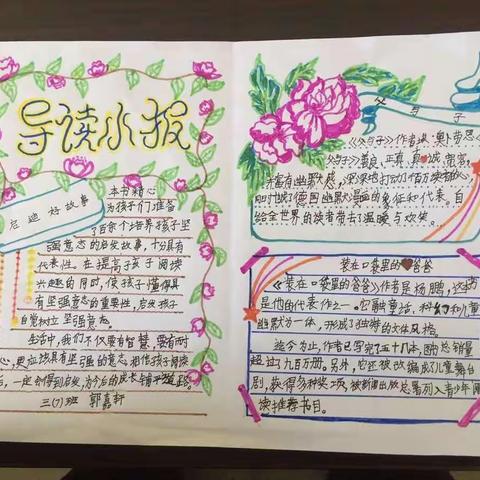 导读小报
启迪好故事
本书精心
为孩子们准备
了百余个培养孩子坚
强意志的启发故事,十分具有
代表性。在提高孩子阅读
兴趣的同时,使孩子懂得具
有坚强意志的重要性,启发孩子
自觉树立坚强意志。
生活中,我们不仅要有智慧,要有耐
心,更应该具有坚强的意志。相信孩子阅读
后,一定会得到启发,为今后的成长铺平道路。
三(7)班 郭嘉轩
父与子
《父与子》作者是·奥·劳恩
《父与子》善良、正直、真诚、宽容,
并富有幽默感,深深地打动了千百万读者的心
同时成了德国幽默漫画的象征和代表。自
给全世界的读者带去了温暖与欢笑。
装在口袋里的爸爸
《装在口袋里的爸爸》作者是杨鹏,这
是他的代表作之一。它融童话、科幻和儿童
幽默为一体,形成了独特的文体风格。
迄今为止,作者已写完了五十几本,图书总销量
超过九百万册。另外,它还被改编成了儿童舞台
剧,获得多种奖项,被新闻出版总署列入青少年阅
读推荐书目。